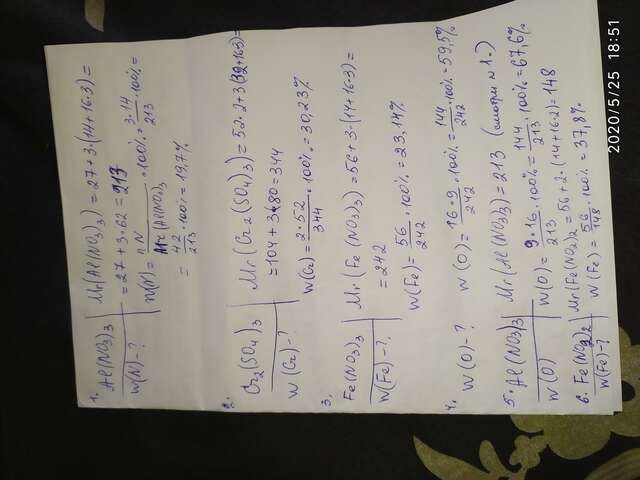 1. Al(NO3)3 | Mr(Al(NO3)3) = 27 + 3·(14+16·3) =
w(N) - ? = 27 + 3·62 = 213
w(N) = n·N / Mr(Al(NO3)3 ·100% = 3·14 / 213 ·100% =
= 42 / 213 ·100% = 19,7%
2. Cr2(SO4)3 | Mr(Cr2(SO4)3) = 52·2+3(32+16·3) =
w(Cr) - ? = 104 + 3·80 = 344
w(Cr) = 2·52 / 344 ·100% = 30,23%
3. Fe(NO3)3 | Mr(Fe(NO3)3) = 56 + 3·(14+16·3) =
w(Fe) - ? = 242
w(Fe) = 56 / 242 ·100% = 23,14%
4. w(O) - ? w(O) = 16·9 / 242 ·100% = 144 / 242 ·100% = 59,5%
5. Al(NO3)3 | Mr(Al(NO3)3) = 213 (смотри №1.)
w(O) w(O) = 9·16 / 213 ·100% = 144 / 213 ·100% = 67,6%
6. Fe(NO2)2 | Mr(Fe(NO2)2 = 56 + 2·(14+16·2) = 148
w(Fe) - ? w(Fe) = 56 / 148 ·100% = 37,8%
2020/5/25 18:51